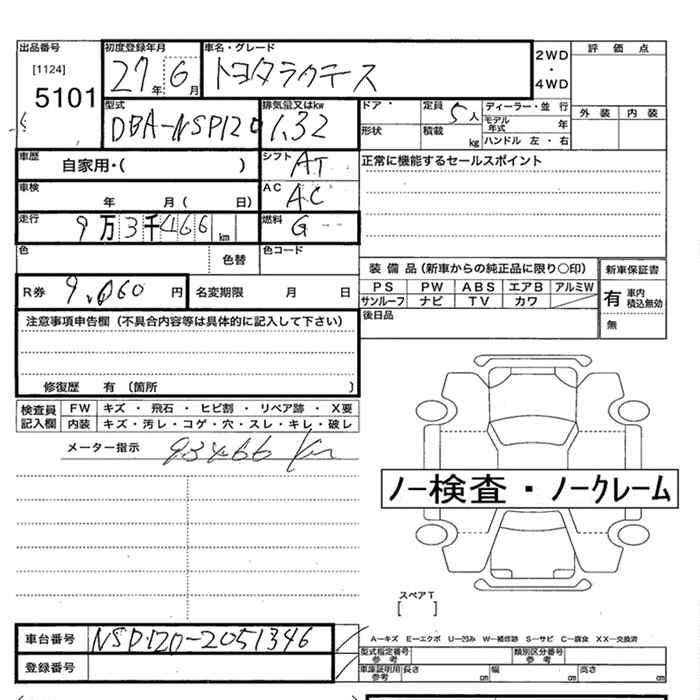 出品番号
[1124]
5101
初度登録年月
27年6月
車名・グレード
トヨタラクティス
2WD
・
4WD
評価点
外装 内装
型式
DBA-NSP120
排気量又はkw
1.32
ドア・
形状
定員 5人
積載 kg
ディーラー・並行
モデル年式 年
ハンドル 左・右
車歴
自家用・( )
シフト
AT
正常に機能するセールスポイント
車検
年 月( 日)
AC
AC
走行
9万3千466km
燃料
G
色
色替
色コード
R券 9,060円
名変期限 月 日
装備品(新車からの純正品に限り〇印)
新車保証書
PS PW ABS エアB アルミW
サンルーフ ナビ TV カワ
有 車内積込無効
無
後日品
注意事項申告欄(不具合内容等は具体的に記入して下さい)
修復歴 有(箇所 )
検査員記入欄
FW キズ・飛石・ヒビ割・リペア跡・X要
内装 キズ・汚レ・コゲ・穴・スレ・キレ・破レ
メーター指示 93466 Km
ノー検査・ノークレーム
スペアT
[ ]
車台番号 NSP120-2051346
登録番号
A−キズ E−エクボ U−凹み W−補修跡 S−サビ C−腐食 XX−交換済
型式指定番号 参考
類別区分番号 参考
車庫証明用 参考
長さ cm 幅 cm 高さ cm